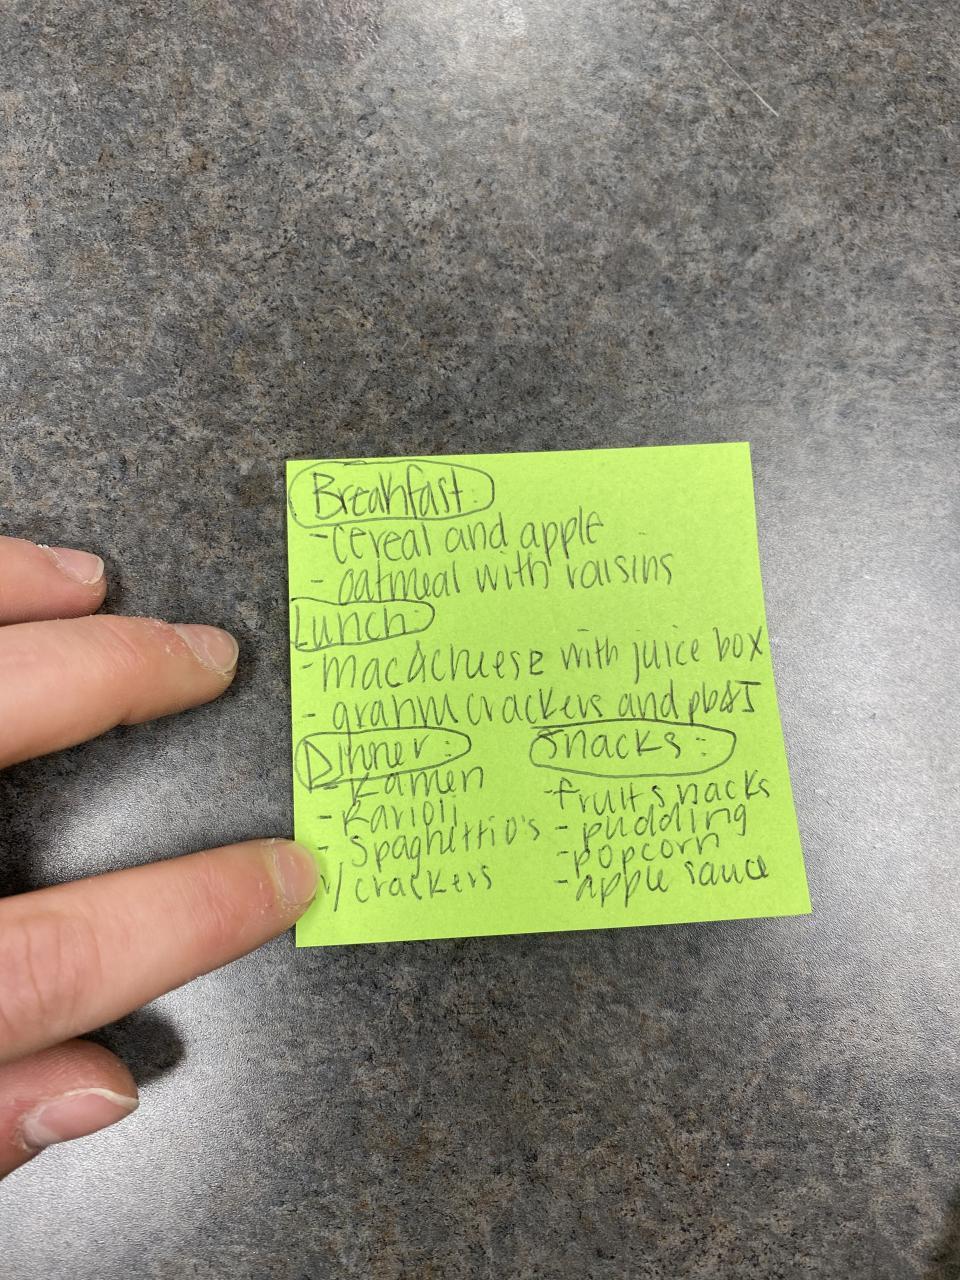 Breakfast:
- cereal and apple
- oatmeal with raisins
Lunch:
- mac&cheese with juice box
- grahm crackers and pb&J
Dinner:
- Ramen
- Ravioli
- SpaghettiO's
w/ crackers
Snacks:
- fruit snacks
- pudding
- popcorn
- apple sauce